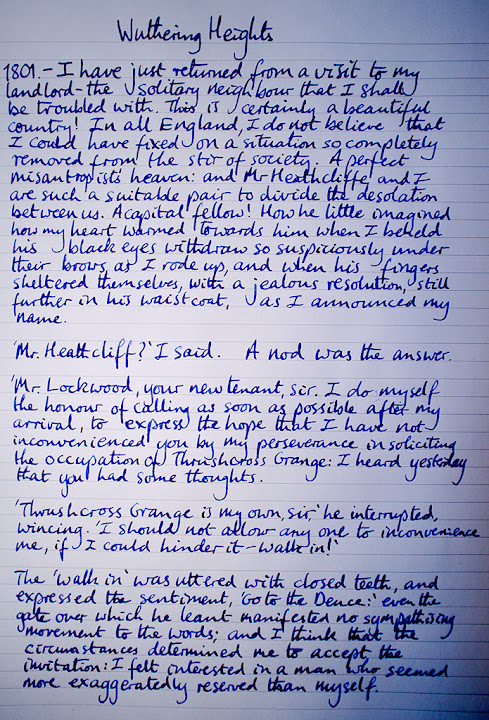 Wuthering Heights
1801.- I have just returned from a visit to my
landlord - the solitary neighbour that I shall
be troubled with. This is certainly a beautiful
country! In all England, I do not believe that
I could have fixed on a situation so completely
removed from the stir of society. A perfect
misantropist's heaven: and Mr Heathcliffe and I
are such a suitable pair to divide the desolation
between us. A capital fellow! How he little imagined
how my heart warmed towards him when I beheld
his black eyes withdraw so suspiciously under
their brows, as I rode up, and when his fingers
sheltered themselves, with a jealous resolution, still
further in his waistcoat, as I announced my
name.
'Mr. Heathcliff?' I said. A nod was the answer.
'Mr. Lockwood, your new tenant, sir. I do myself
the honour of calling as soon as possible after my
arrival, to express the hope that I have not
inconvenienced you by my perseverance in soliciting
the occupation of Thrushcross Grange: I heard yesterday
that you had some thoughts.
'Thrushcross Grange is my own, sir,' he interrupted,
wincing. 'I should not allow any one to inconvenience
me, if I could hinder it - walk in!'
The 'walk in' was uttered with closed teeth, and
expressed the sentiment, 'Go to the Deuce:' even the
gate over which he leant manifested no sympathising
movement to the words; and I think that the
circumstances determined me to accept the
invitation: I felt interested in a man who seemed
more exaggeratedly reserved than myself.